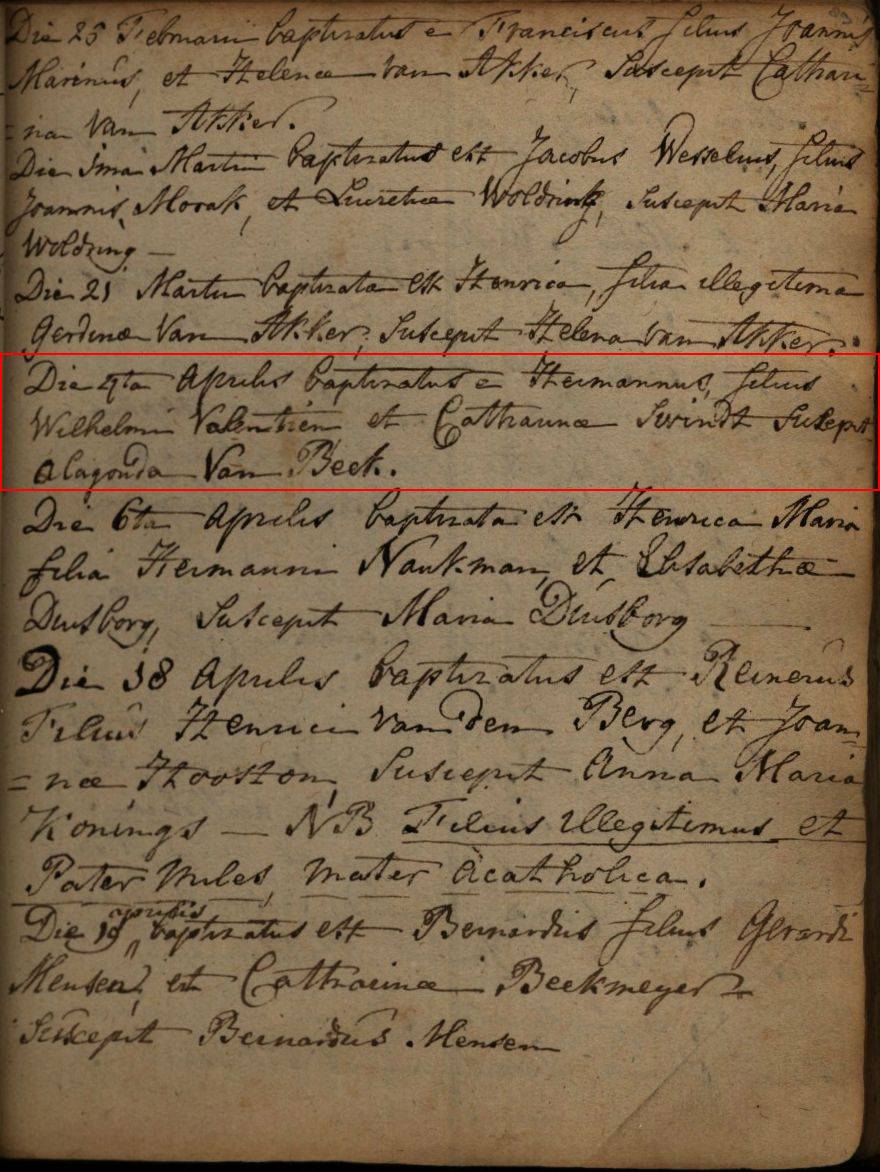 Die 25 Februarii baptizatus e Franciscus filius Joannis
Marinus, et Helenæ van Akker, Suscepit Cathari=
=na Van Akker.
Die 1ma Martii baptizatus est Jacobus Wesselius, filius
Joannis Morak, et Lucretiæ Woldring, suscepit Maria
Woldring —
Die 21 Martii baptizata est Henrica, filia illegitima
Gerdinæ Van Akker, Suscepit Helena van Akker.
Die 4ta Aprilis baptizatus e Hermannus, filius
Wilhelmi Valentien et Catharinæ Swindt Suscepit
Alagonda Van Beek.
Die 6ta Aprilis baptizata est Henrica Maria
filia Hermanni Naukman, et Elisabethæ
Dusborg, Suscepit Maria Dusborg —
Die 18 Aprilis baptizatus est Reinerus
Filius Henrici van den Berg, et Joan=
=næ Hooston, Suscepit Anna Maria
Konings — NB Filius illegitimus et
Pater miles, mater Acatholica.
Die 19 aprilis baptizatus est Bernardus filius Gerardi
Mensen, et Catharinæ Beekmeyer
Suscepit Bernardus Mensen